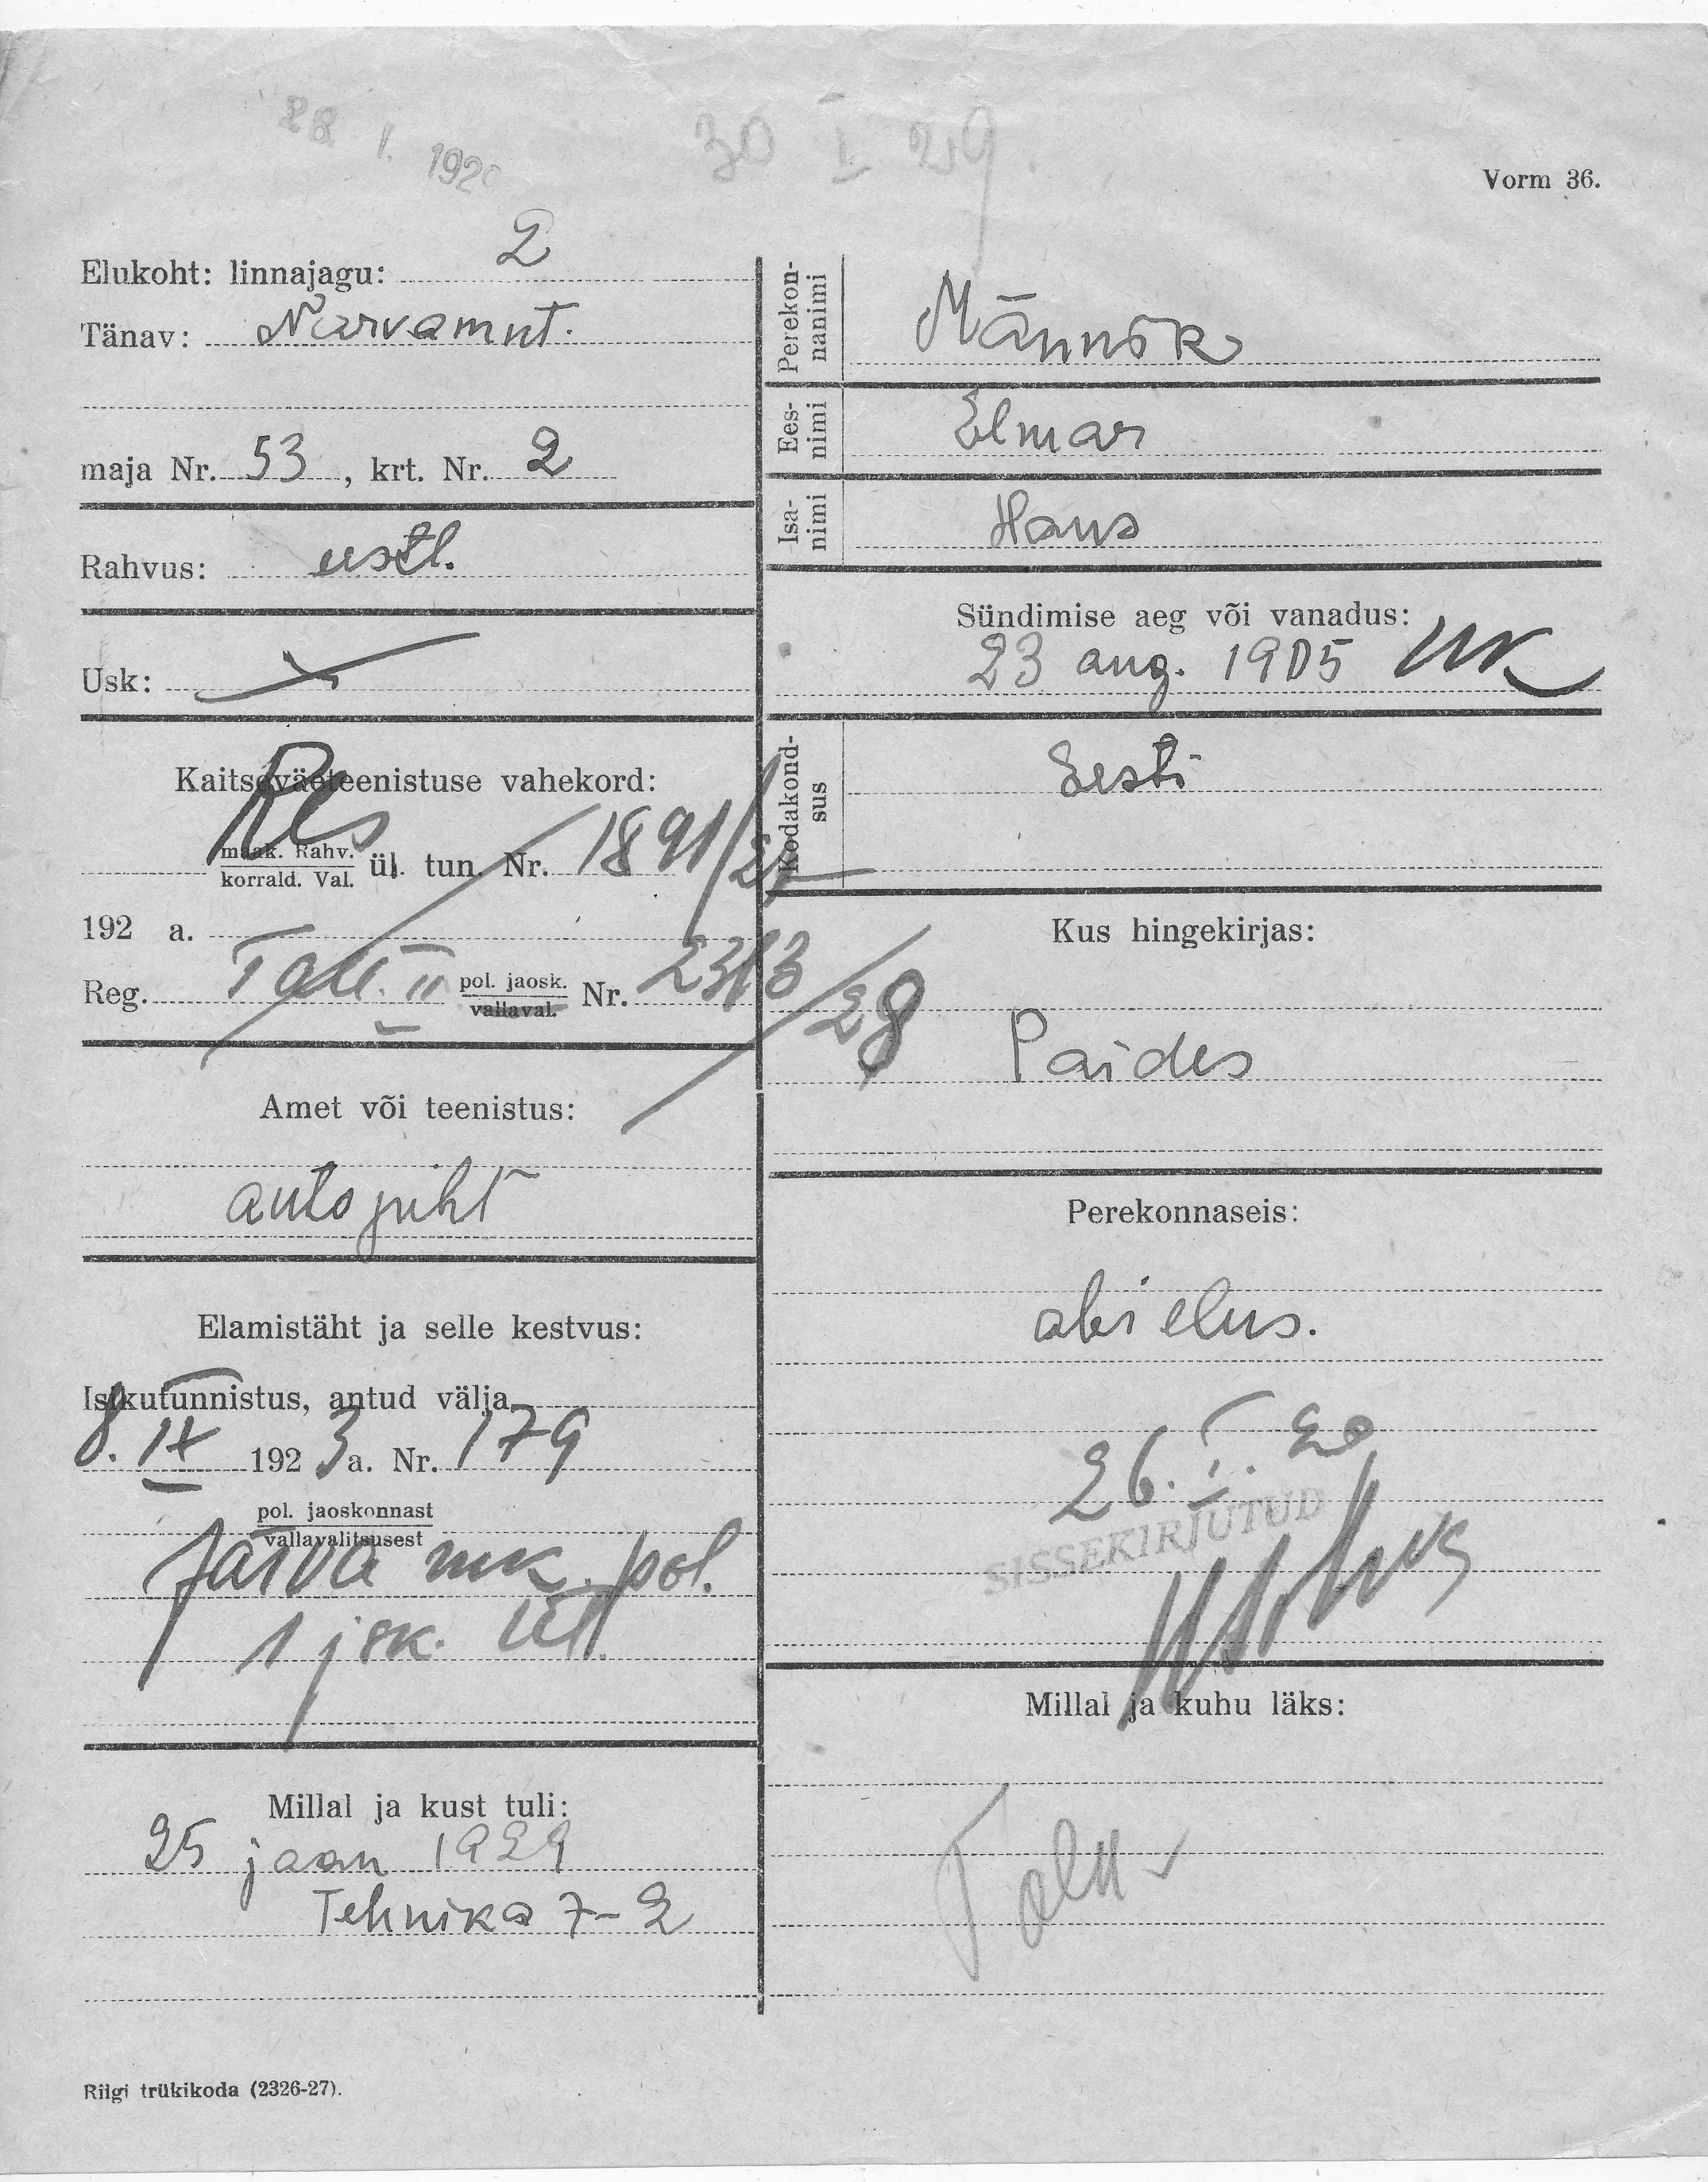 28. I. 192
30 I 29.
Vorm 36.
Elukoht: linnajagu: 2
Tänav: Narva mnt.
maja Nr. 53, krt. Nr. 2
Rahvus: eestl.
Usk:
Kaitseväeteenistuse vahekord:
Res
maak. Rahv.
korrald. Val. ül. tun. Nr. 1891/27
192 a.
Reg. Tall. II pol. jaosk.
vallaval. Nr. 2313/28
Amet või teenistus:
autojuht
Elamistäht ja selle kestvus:
Isikutunnistus, antud välja
8. IX 1923 a. Nr. 179
pol. jaoskonnast
vallavalitsusest
Järva mk. pol.
1 jsk. ül.
Millal ja kust tuli:
25 jaan 1929
Tehnika 7-2
Perekon-
nanimi Männik
Ees-
nimi Elmar
Isa-
nimi Hans
Sündimise aeg või vanadus:
23 aug. 1905
Kodakond-
sus Eesti
Kus hingekirjas:
Paides
Perekonnaseis:
abielus.
26. I.
SISSEKIRJUTUD
Millal ja kuhu läks:
Riigi trükikoda (2326-27).